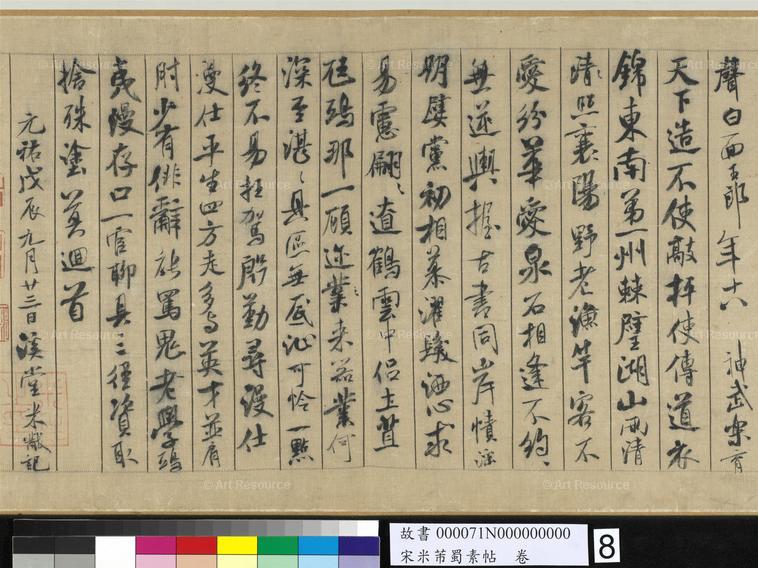 聲白面玉郎年十八神武樂育
天下造不使敲枰使傳道衣
錦東南第一州棘璧湖山兩清
照襄陽野老漁竿客不
愛紛華愛泉石相逢不約〻
無逆輿握古書同岸幘淫
朋嬖黨初相慕濯髮灑心求
易慮翩〻遼鶴雲中侶土苴
尪鴟那一顧邇業來器業何
深至湛〻具區無底沚可憐一點
終不易枉駕殷勤尋漫仕
漫仕平生四方走多與英才並肩
肘少有俳辭能罵鬼老學鴟
夷漫存口一官聊具三徑資取
捨殊塗莫迴首
元祐戊辰九月廿三日溪堂米黻記
故書 000071N000000000
宋米芾蜀素帖 卷
8
© Art Resource